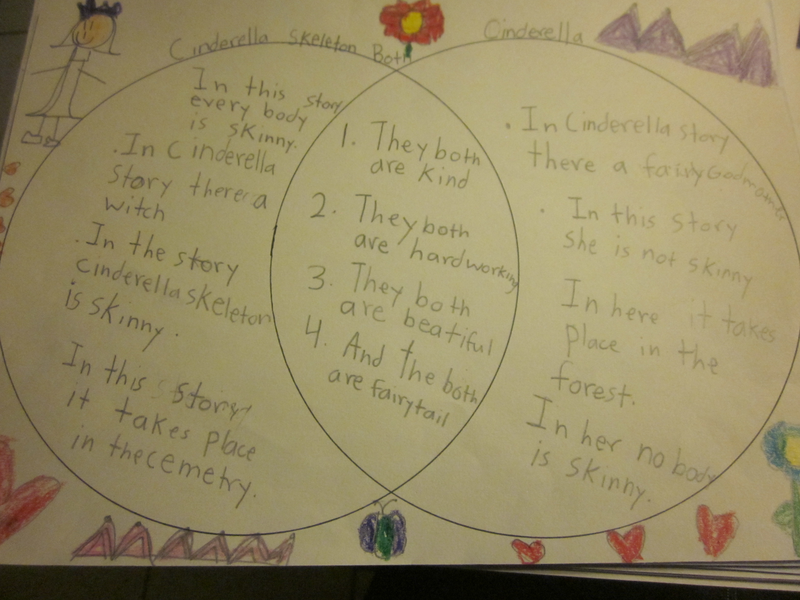 Cinderella Skeleton
Both
Cinderella
In this story
every body
is skinny.
.In Cinderella
story there a
witch
.In the story
cinderella skeleton
is skinny.
In this story
it takes place
in the cemetry.
1. They both
are kind
2. They both
are hardworking
3. They both
are beatiful
4. And the both
are fairytail
.In Cinderella story
there a fairly Godmother
. In this story
she is not skinny
In here it takes
place in the
forest.
In her no body
is skinny.